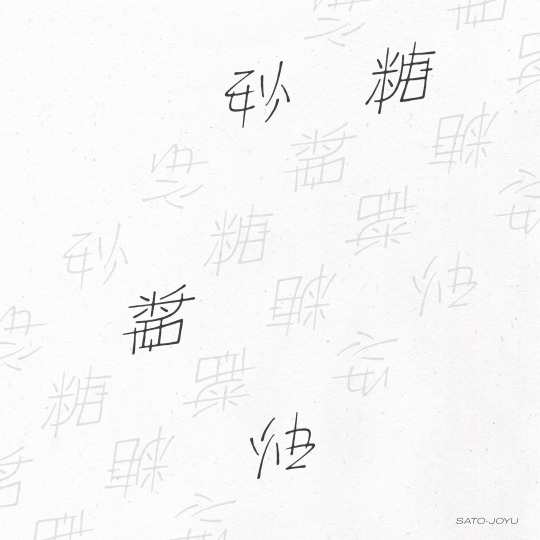 砂 糖
醤
油
SATO-JOYU